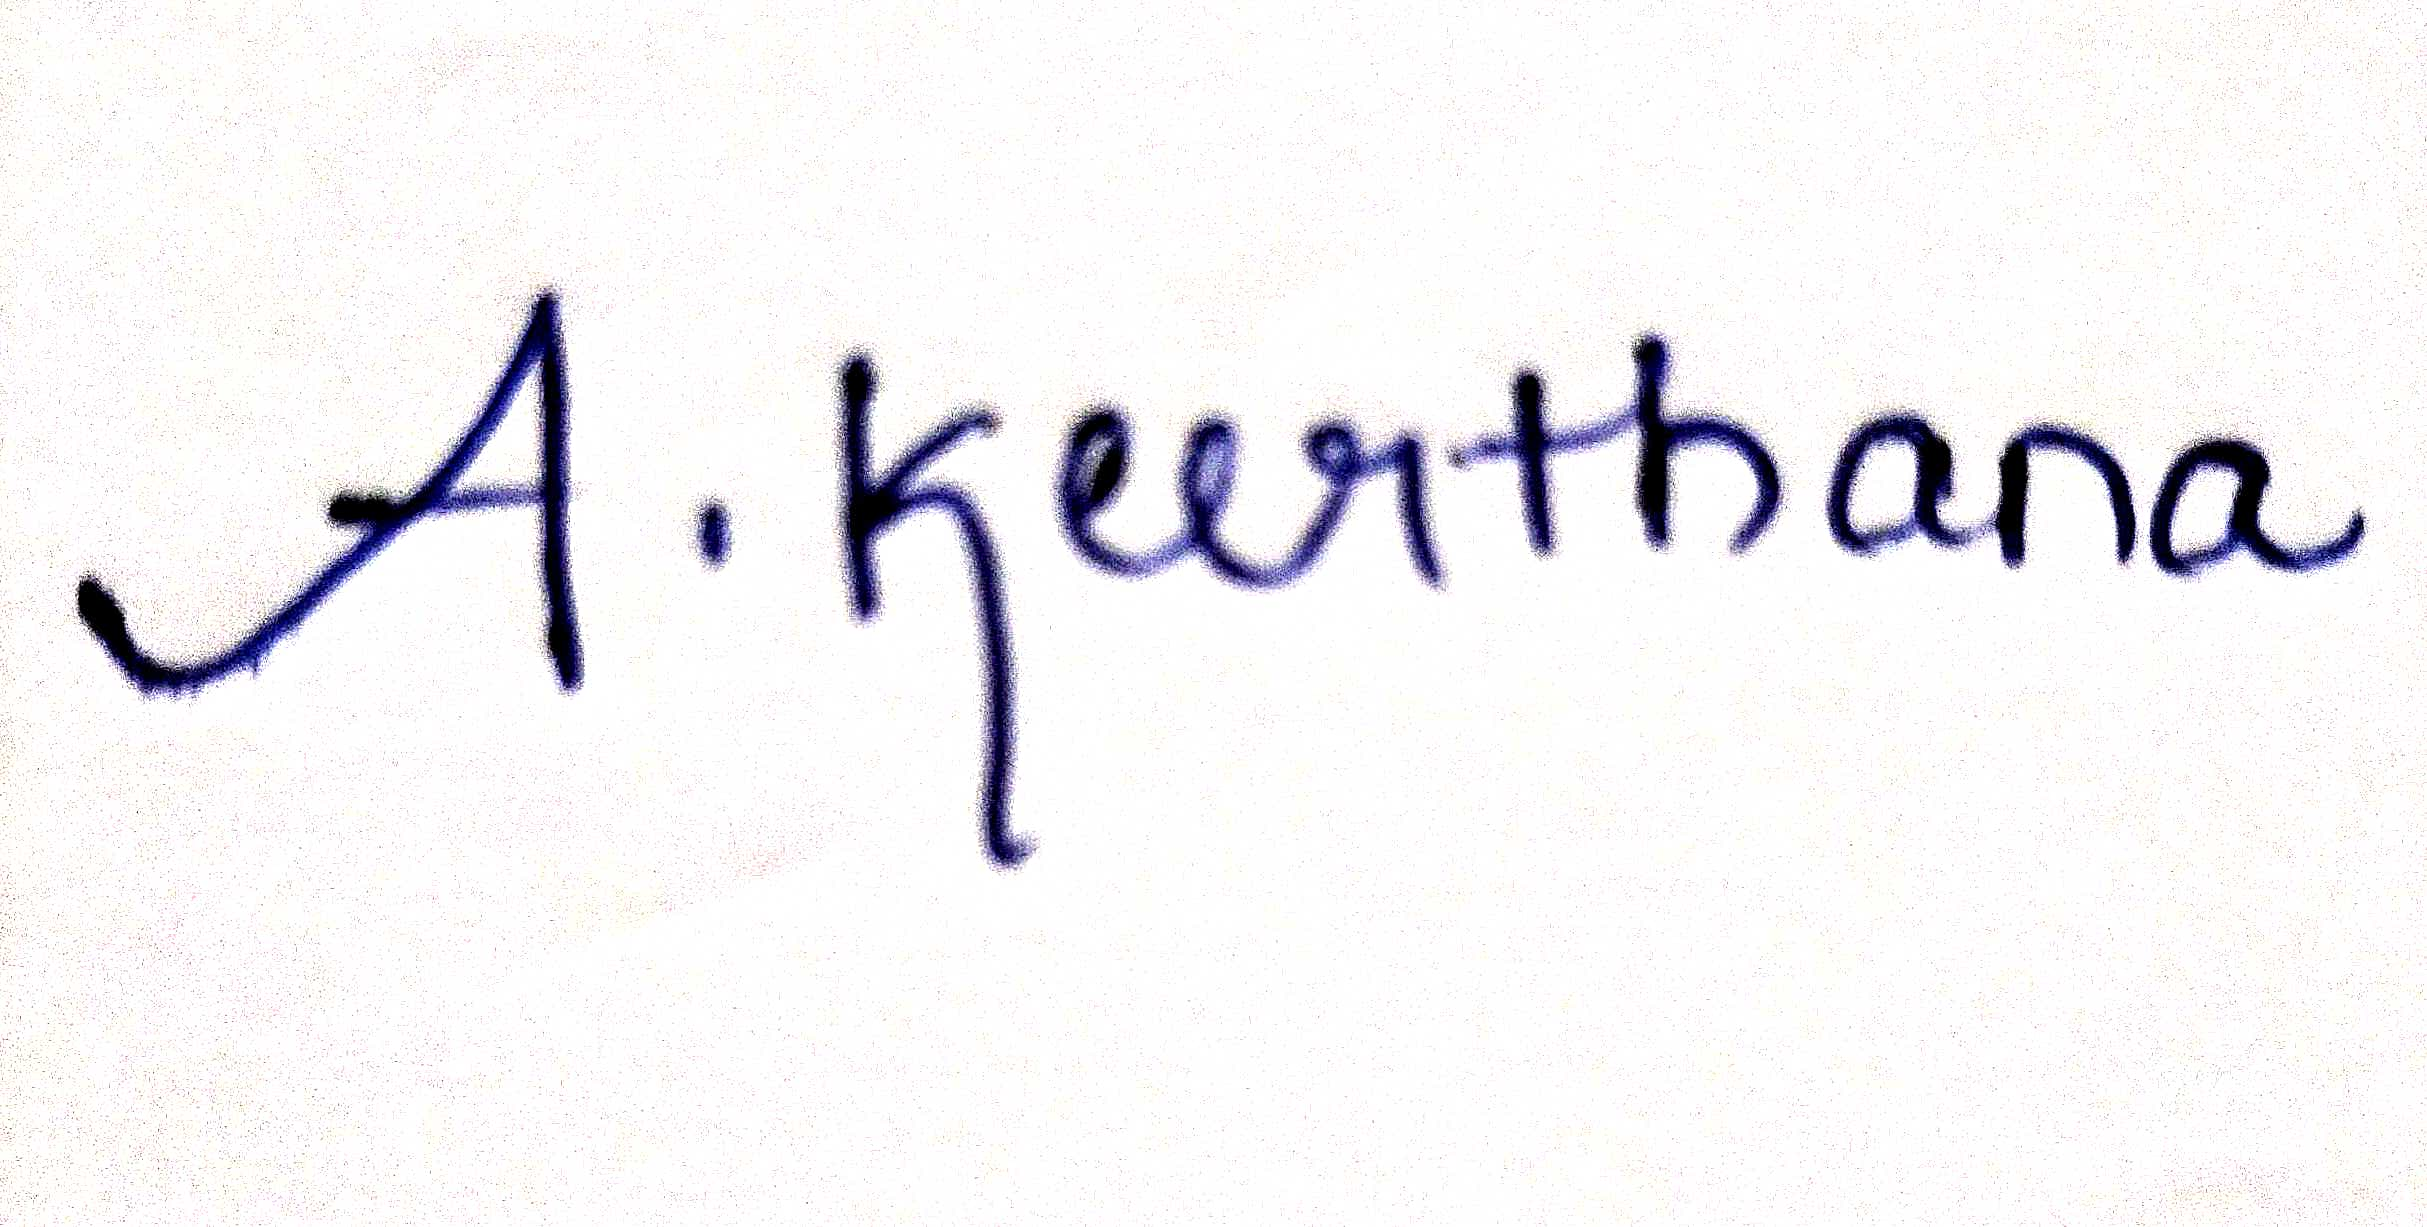 A. Keerthana